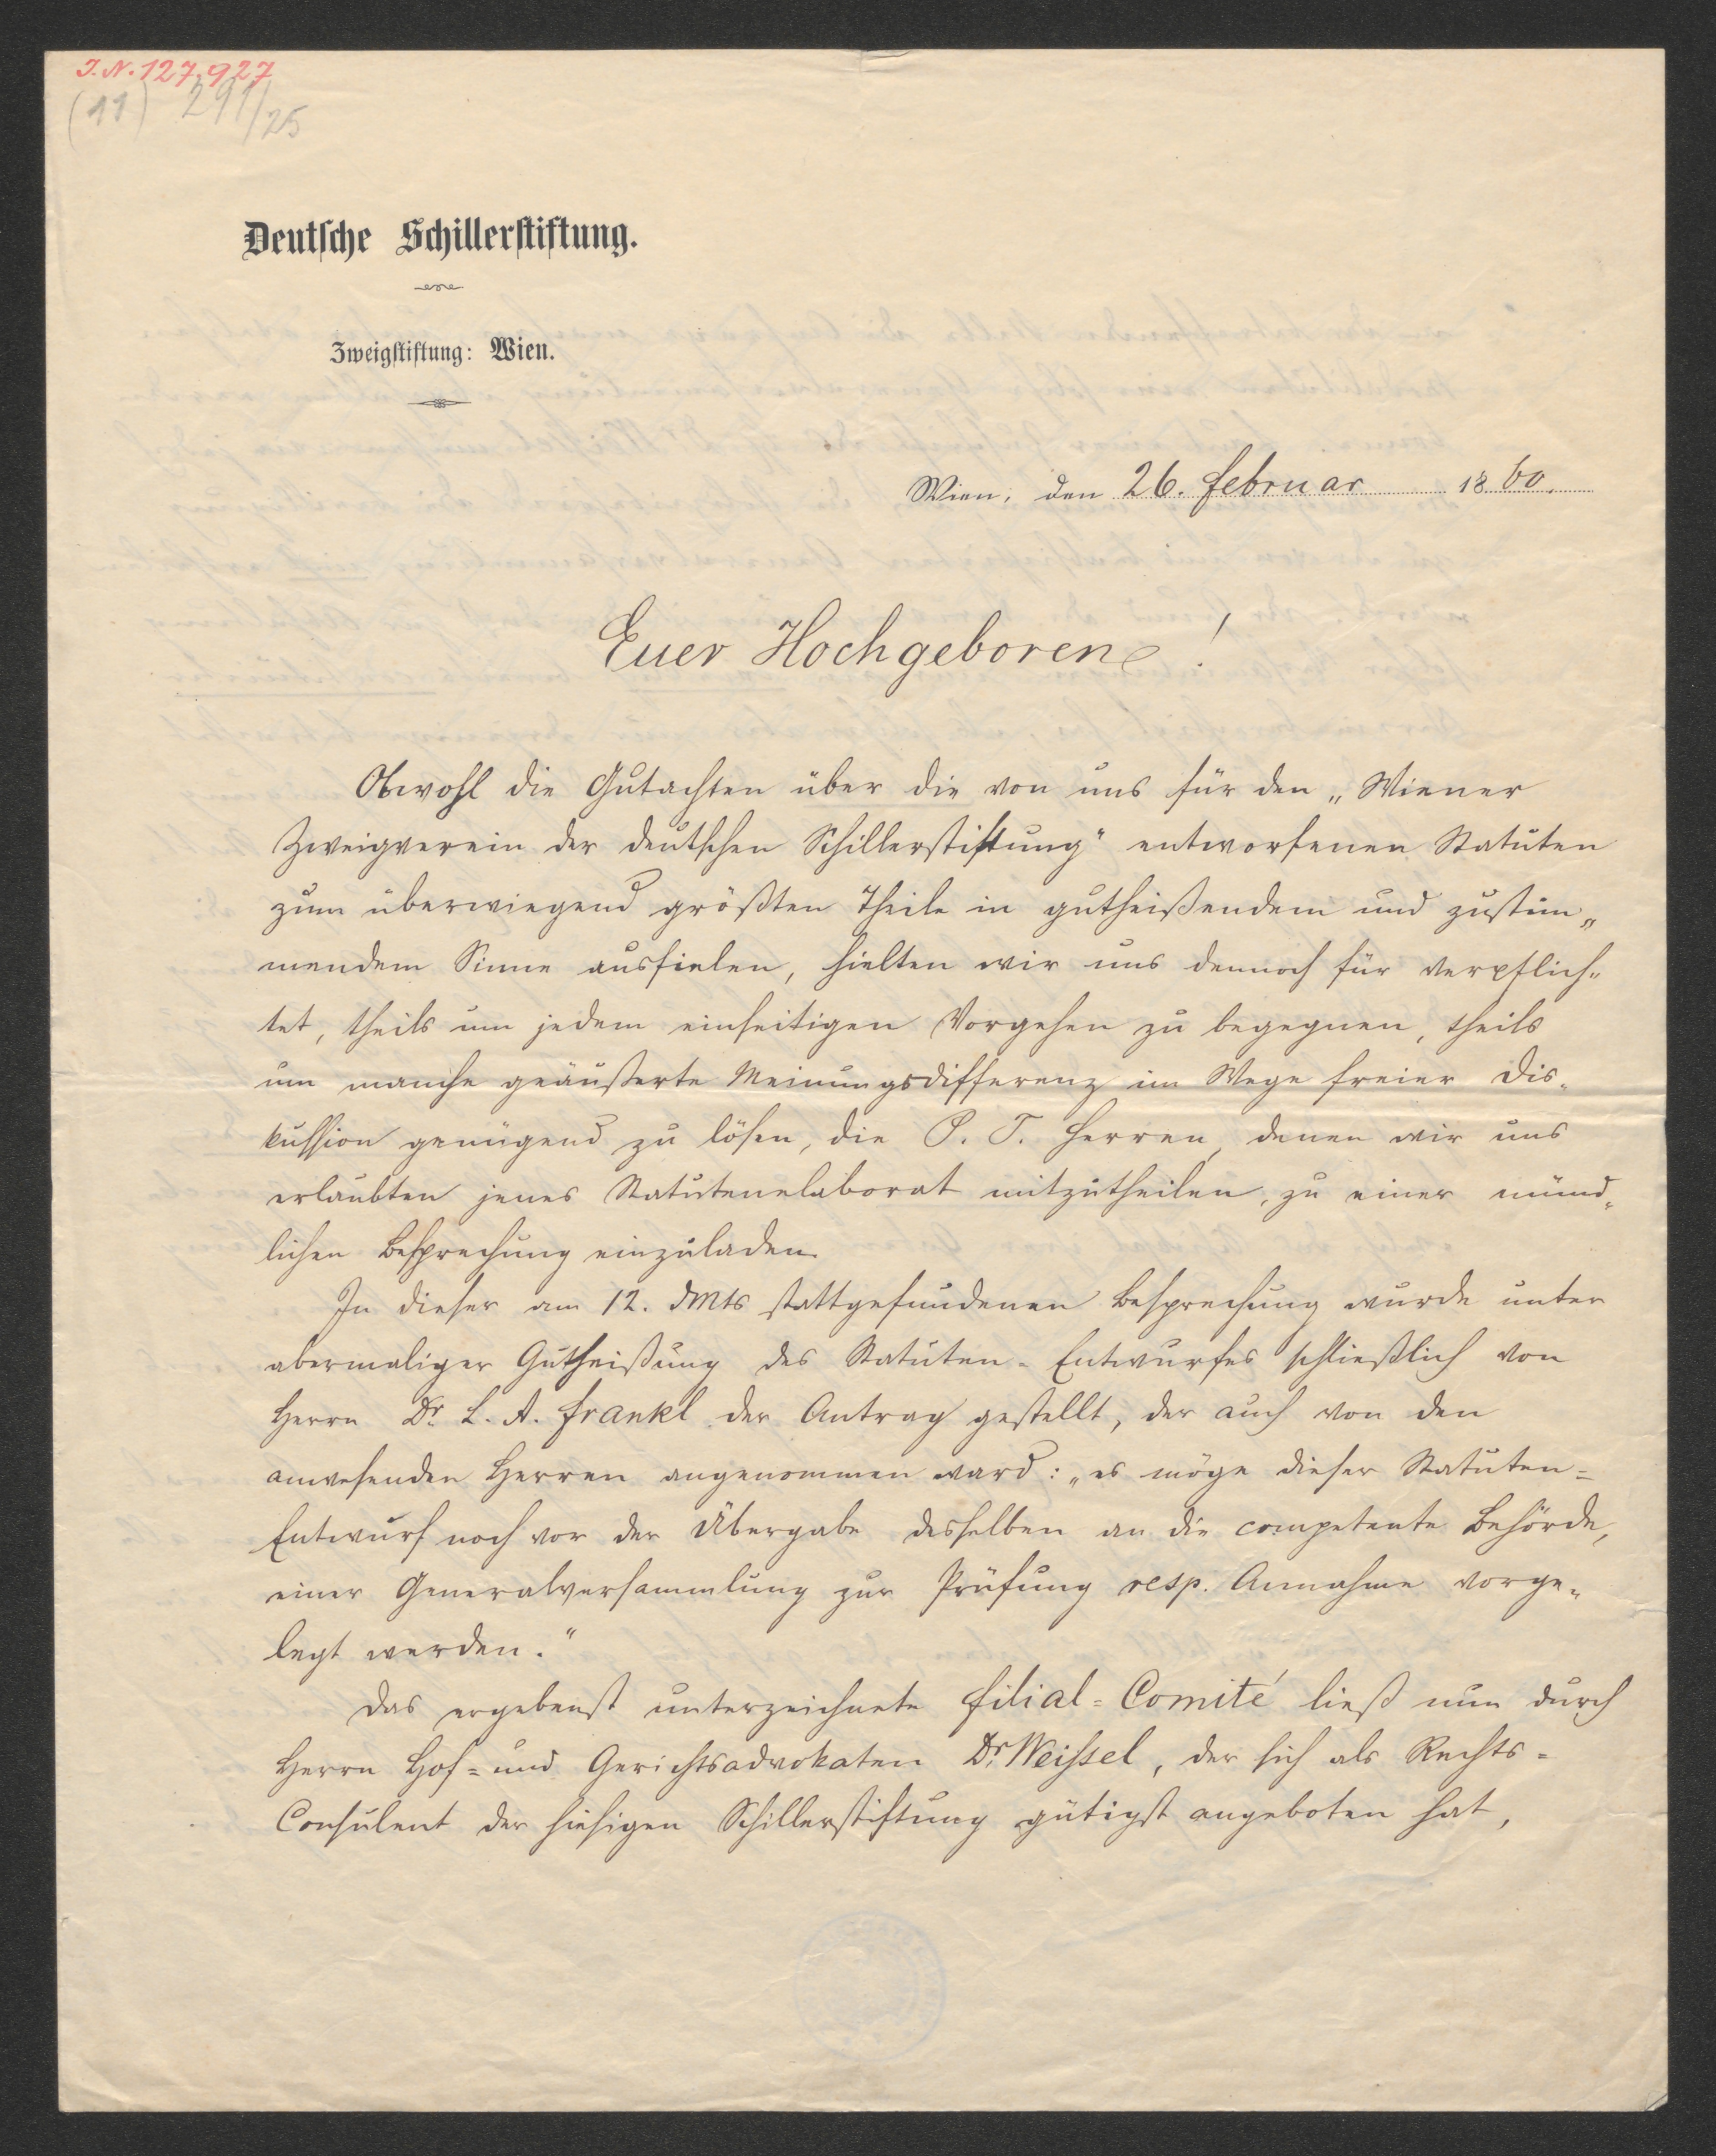 J. N. 127.927
(11) 291/25
Deutsche Schillerstiftung.
Zweigstiftung: Wien.
Wien, den 26. Februar 1860.
Euer Hochgeboren!
Obwohl die Gutachten über die von uns für den „Wiener
Zweigverein der deutschen Schillerstiftung“ entworfenen Statuten
zum überwiegend größten Theile in gutheißendem und zustim„
mendem Sinne ausfielen, hielten wir uns dennoch für verpflich„
tet, theils um jedem einseitigen Vorgehen zu begegnen, theils
um manche geäußerte Meinungsdifferenz im Wege freier Dis„
kussion genügend zu lösen, die P. T. Herren, denen wir uns
erlaubten jenes Statutenelaborat mitzutheilen, zu einer münd„
lichen Besprechung einzuladen.
In dieser am 12. dMts stattgefundenen Besprechung wurde unter
abermaliger Gutheißung des Statuten-Entwurfes schließlich von
Herrn Dr. L. A. Frankl der Antrag gestellt, der auch von den
anwesenden Herren angenommen ward: „es möge dieser Statuten=
Entwurf noch vor der Übergabe desselben an die competente Behörde,
einer Generalversammlung zur Prüfung resp. Annahme vorge„
legt werden.“
Das ergebenst unterzeichnete Filial=Comité ließ nun durch
Herrn Hof= und Gerichtsadvokaten Dr. Weissel, der sich als Rechts=
Consulent der hiesigen Schillerstiftung gütigst angeboten hat,